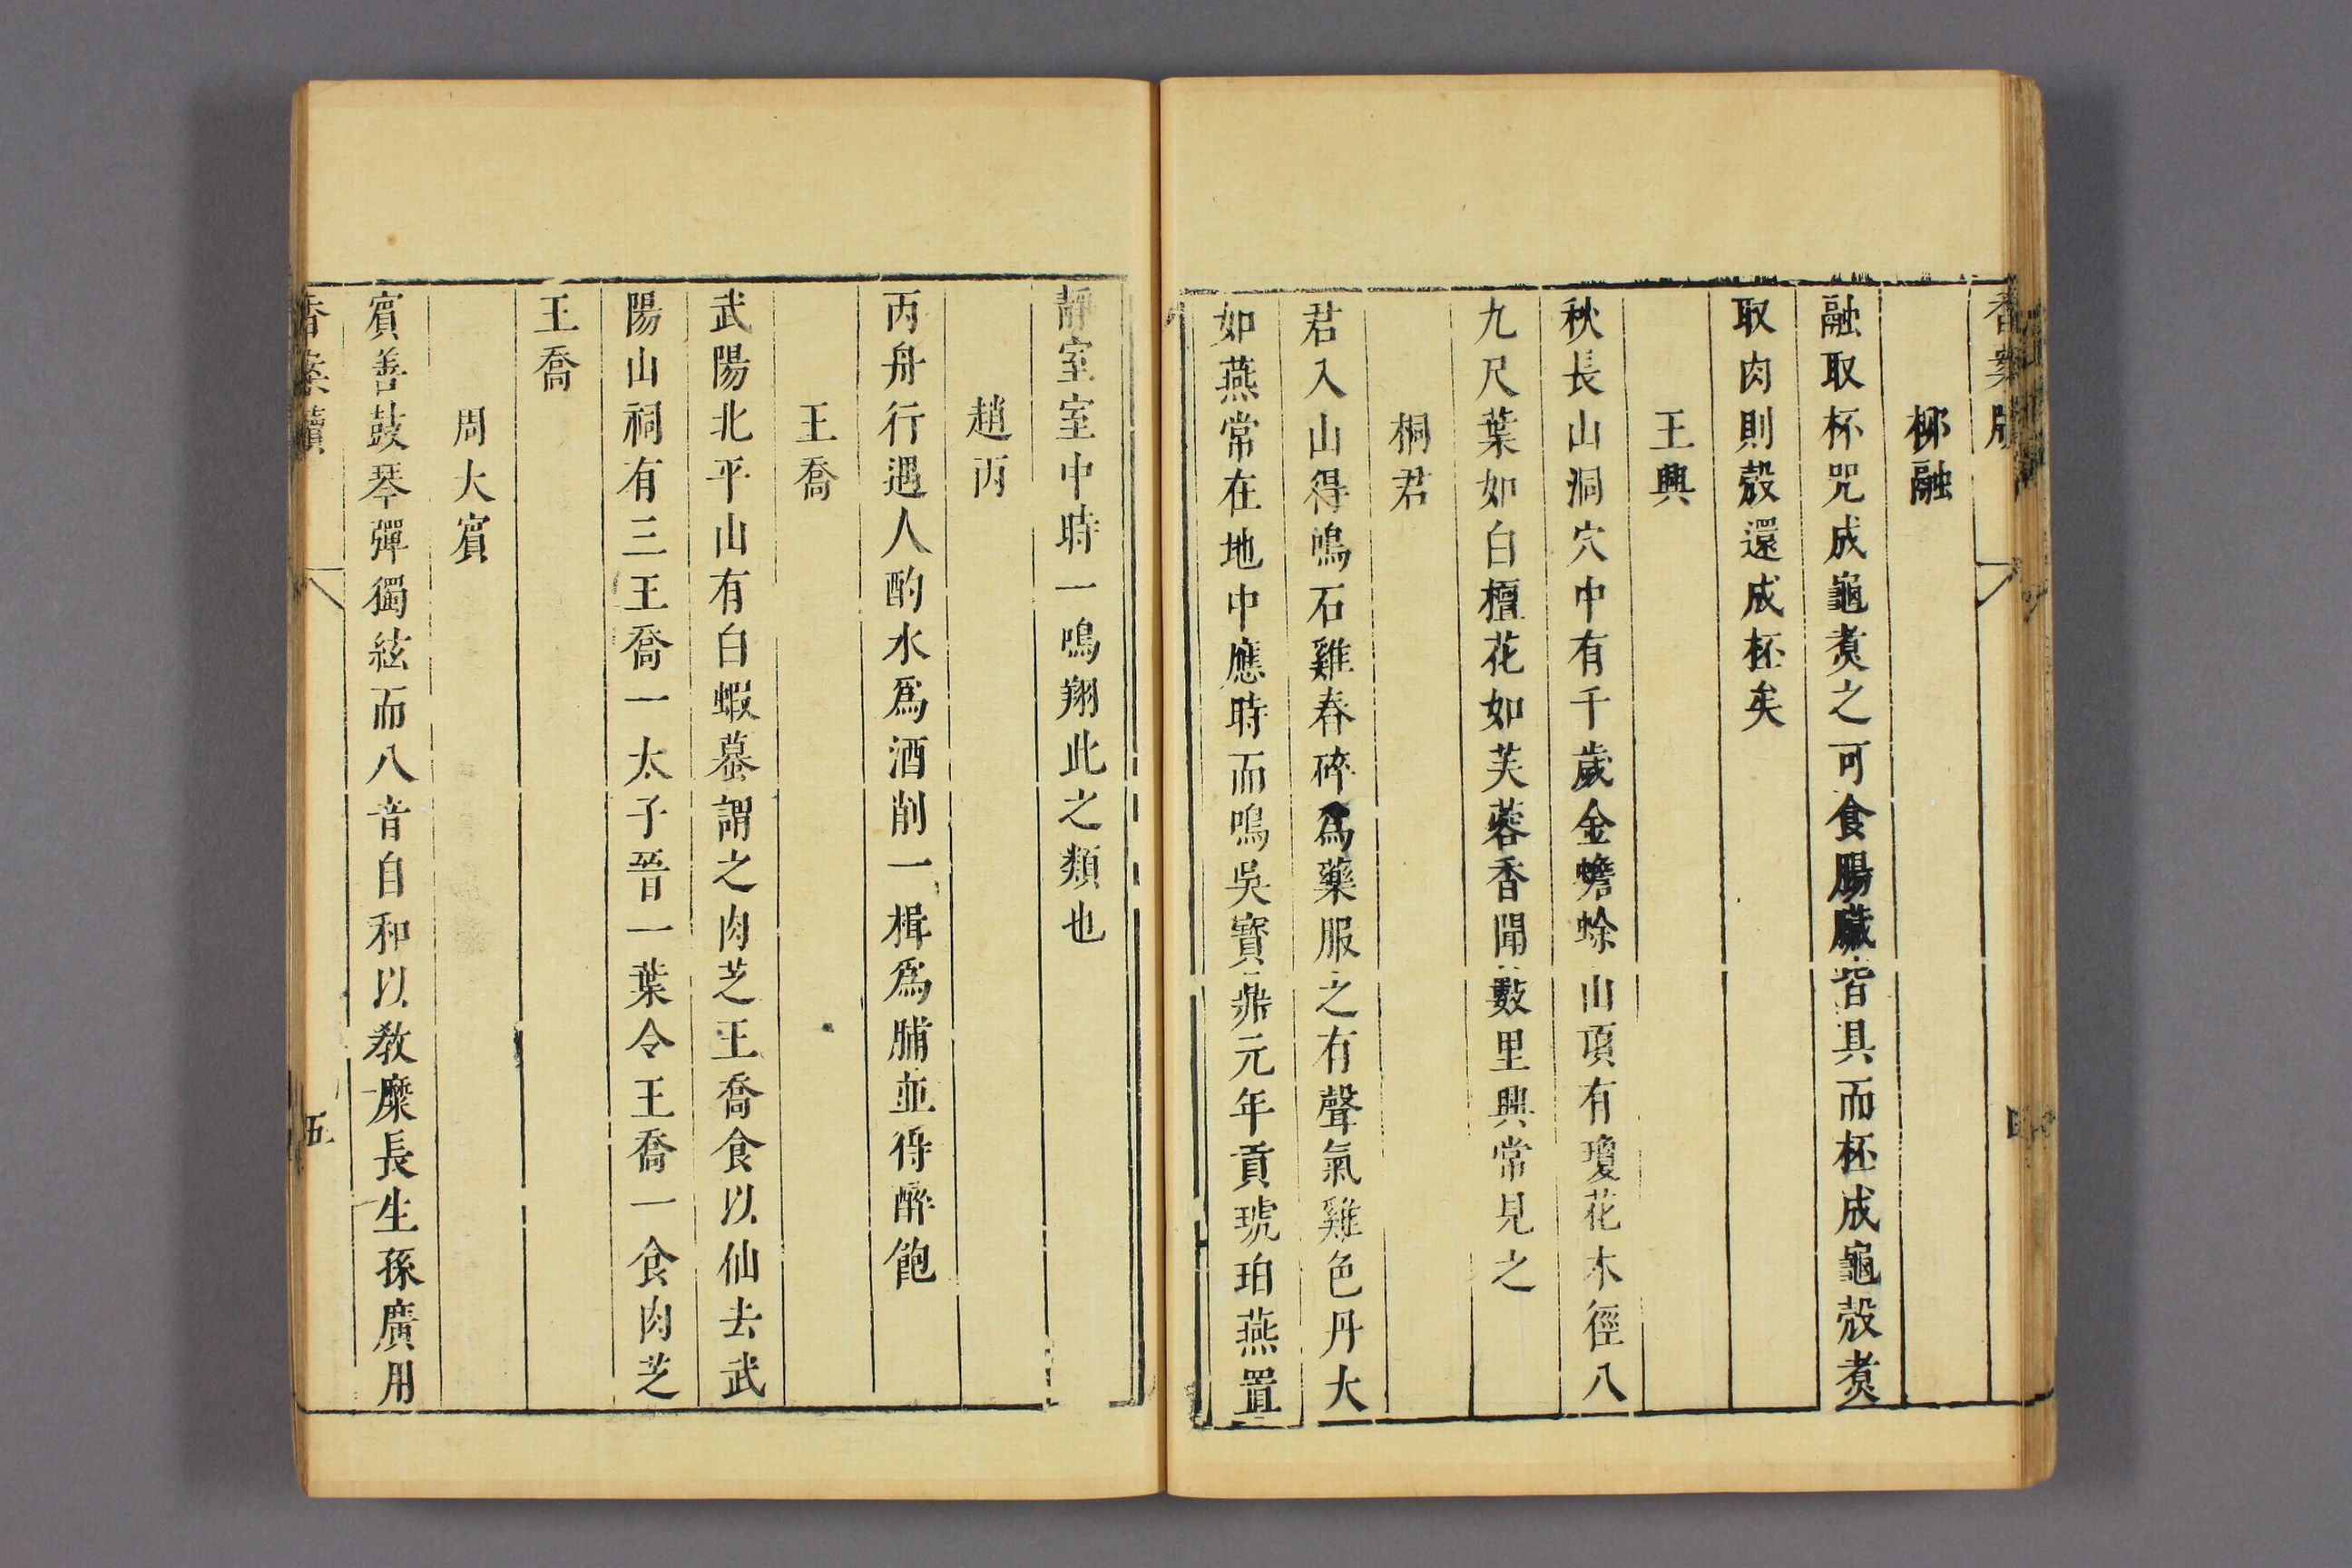 香案牘
柳融
融取杯咒成龜煑之可食腸臟皆具而杯成龜殼煑
取肉則殼還成杯矣
王興
秋長山洞穴中有千歲金蟾蜍山頂有瓊花木徑八
九尺葉如白檀花如芙蓉香聞數里興常見之
桐君
君入山得鳴石雞舂碎爲藥服之有聲氣雞色丹大
如燕常在地中應時而鳴吳寶鼎元年貢琥珀燕置
靜室室中時一鳴翔此之類也
趙丙
丙舟行遇人酌水爲酒削一楫爲脯並得醉飽
王喬
武陽北平山有白蝦蟇謂之肉芝王喬食以仙去武
陽山祠有三王喬一太子晉一葉令王喬一食肉芝
王喬
周大賓
賓善鼓琴彈獨絃而八音自和以教糜長生孫廣用
香案牘
五